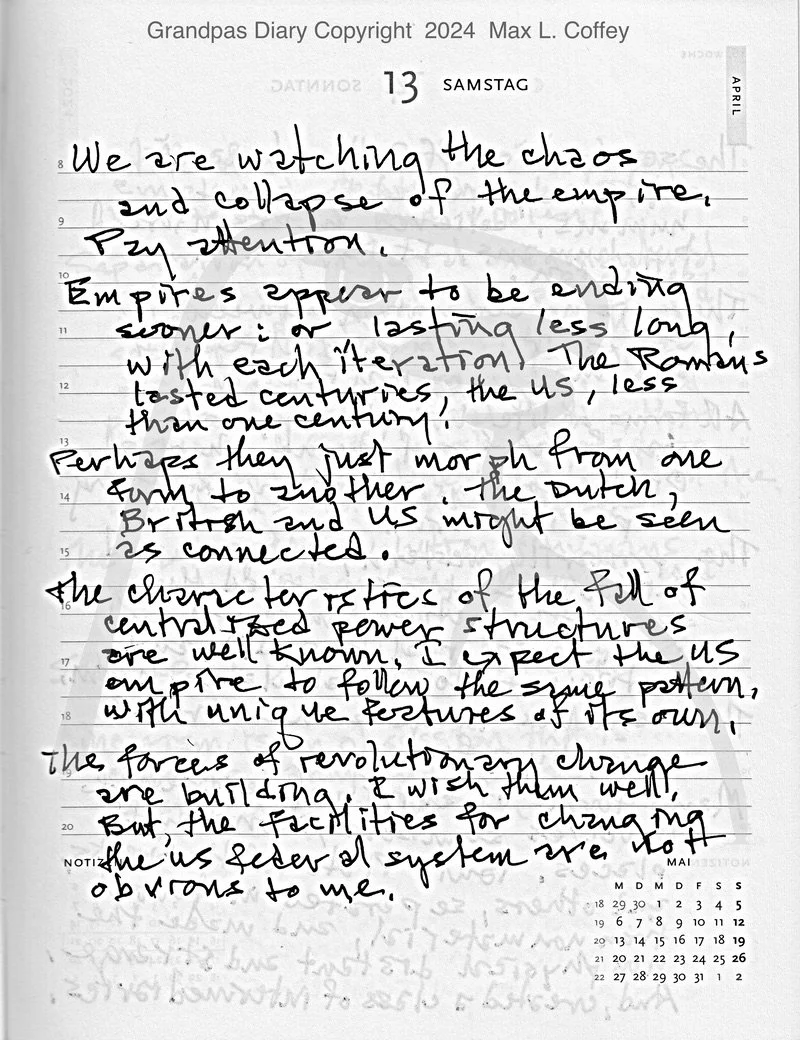 Grandpas Diary Copyright 2024 Max L. Coffey
13 SAMSTAG
APRIL
8 We are watching the chaos
and collapse of the empire.
9
Pay attention.
10
Empires appear to be ending
11 sooner: or lasting less long,
with each iteration. The Romans
12 lasted centuries, the US, less
than one century!
13
Perhaps they just morph from one
14 form to another. The Dutch,
British and US might be seen
15 as connected.
The characteristics of the fall of
16
centralized power structures
17 are well known. I expect the US
empire to follow the same pattern,
18 with unique features of its own.
The forces of revolutionary change
19
are building. I wish them well.
20 But, the facilities for changing
the US federal system are not
obvious to me.
NOTIZ
MAI
M D M D F S S
18 29 30 1 2 3 4 5
19 6 7 8 9 10 11 12
20 13 14 15 16 17 18 19
21 20 21 22 23 24 25 26
22 27 28 29 30 31 1 2